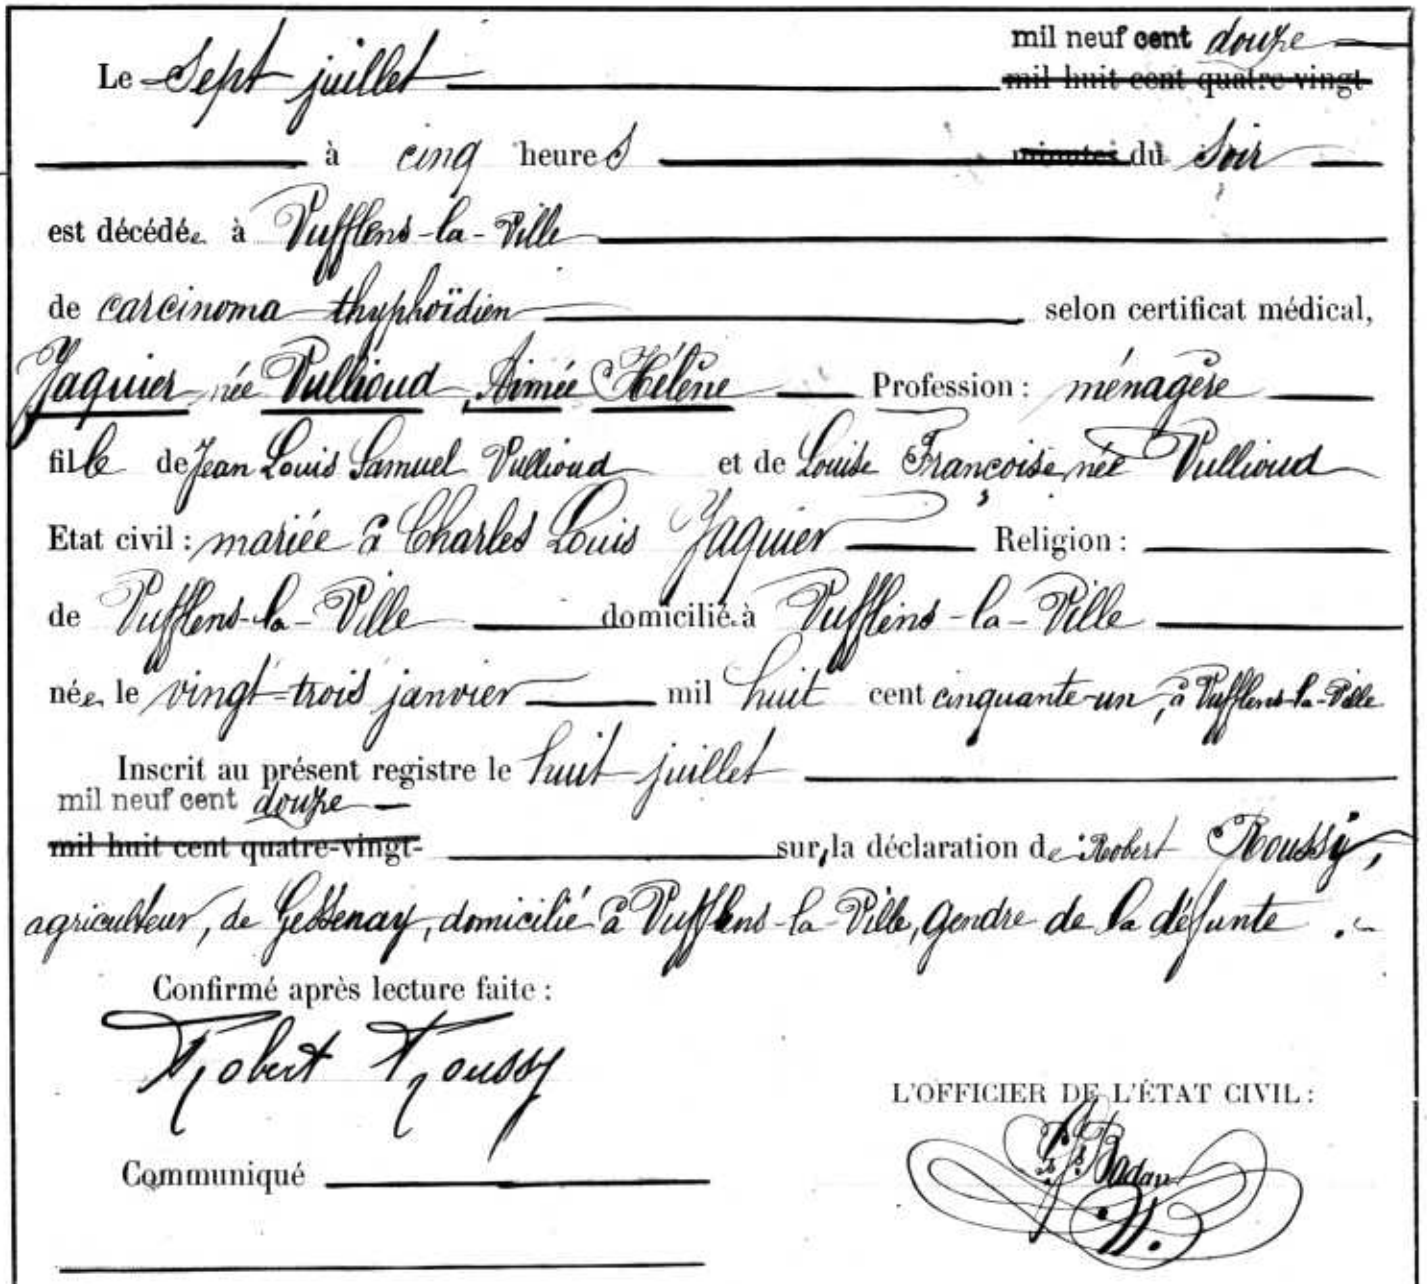 mil neuf cent douze
Le Sept juillet mil huit cent quatre-vingt
à cinq heures minutes du Soir
est décédée à Vufflens-la-Ville
de carcinoma thyphoïdien selon certificat médical,
Jaquier née Vullioud, Aimée Hélène Profession : ménagère
fille de Jean Louis Samuel Vullioud et de Louise Françoise née Vullioud
Etat civil : mariée à Charles Louis Jaquier Religion :
de Vufflens-la-Ville domiciliée à Vufflens-la-Ville
née le vingt-trois janvier mil huit cent cinquante-un, à Vufflens-la-Ville
Inscrit au présent registre le huit juillet
mil neuf cent douze
mil huit cent quatre-vingt- sur la déclaration de Robert Roussy,
agriculteur, de Gessenay, domicilié à Vufflens-la-Ville, gendre de la défunte.
Confirmé après lecture faite :
Robert Roussy
L'OFFICIER DE L'ÉTAT CIVIL :
Communiqué